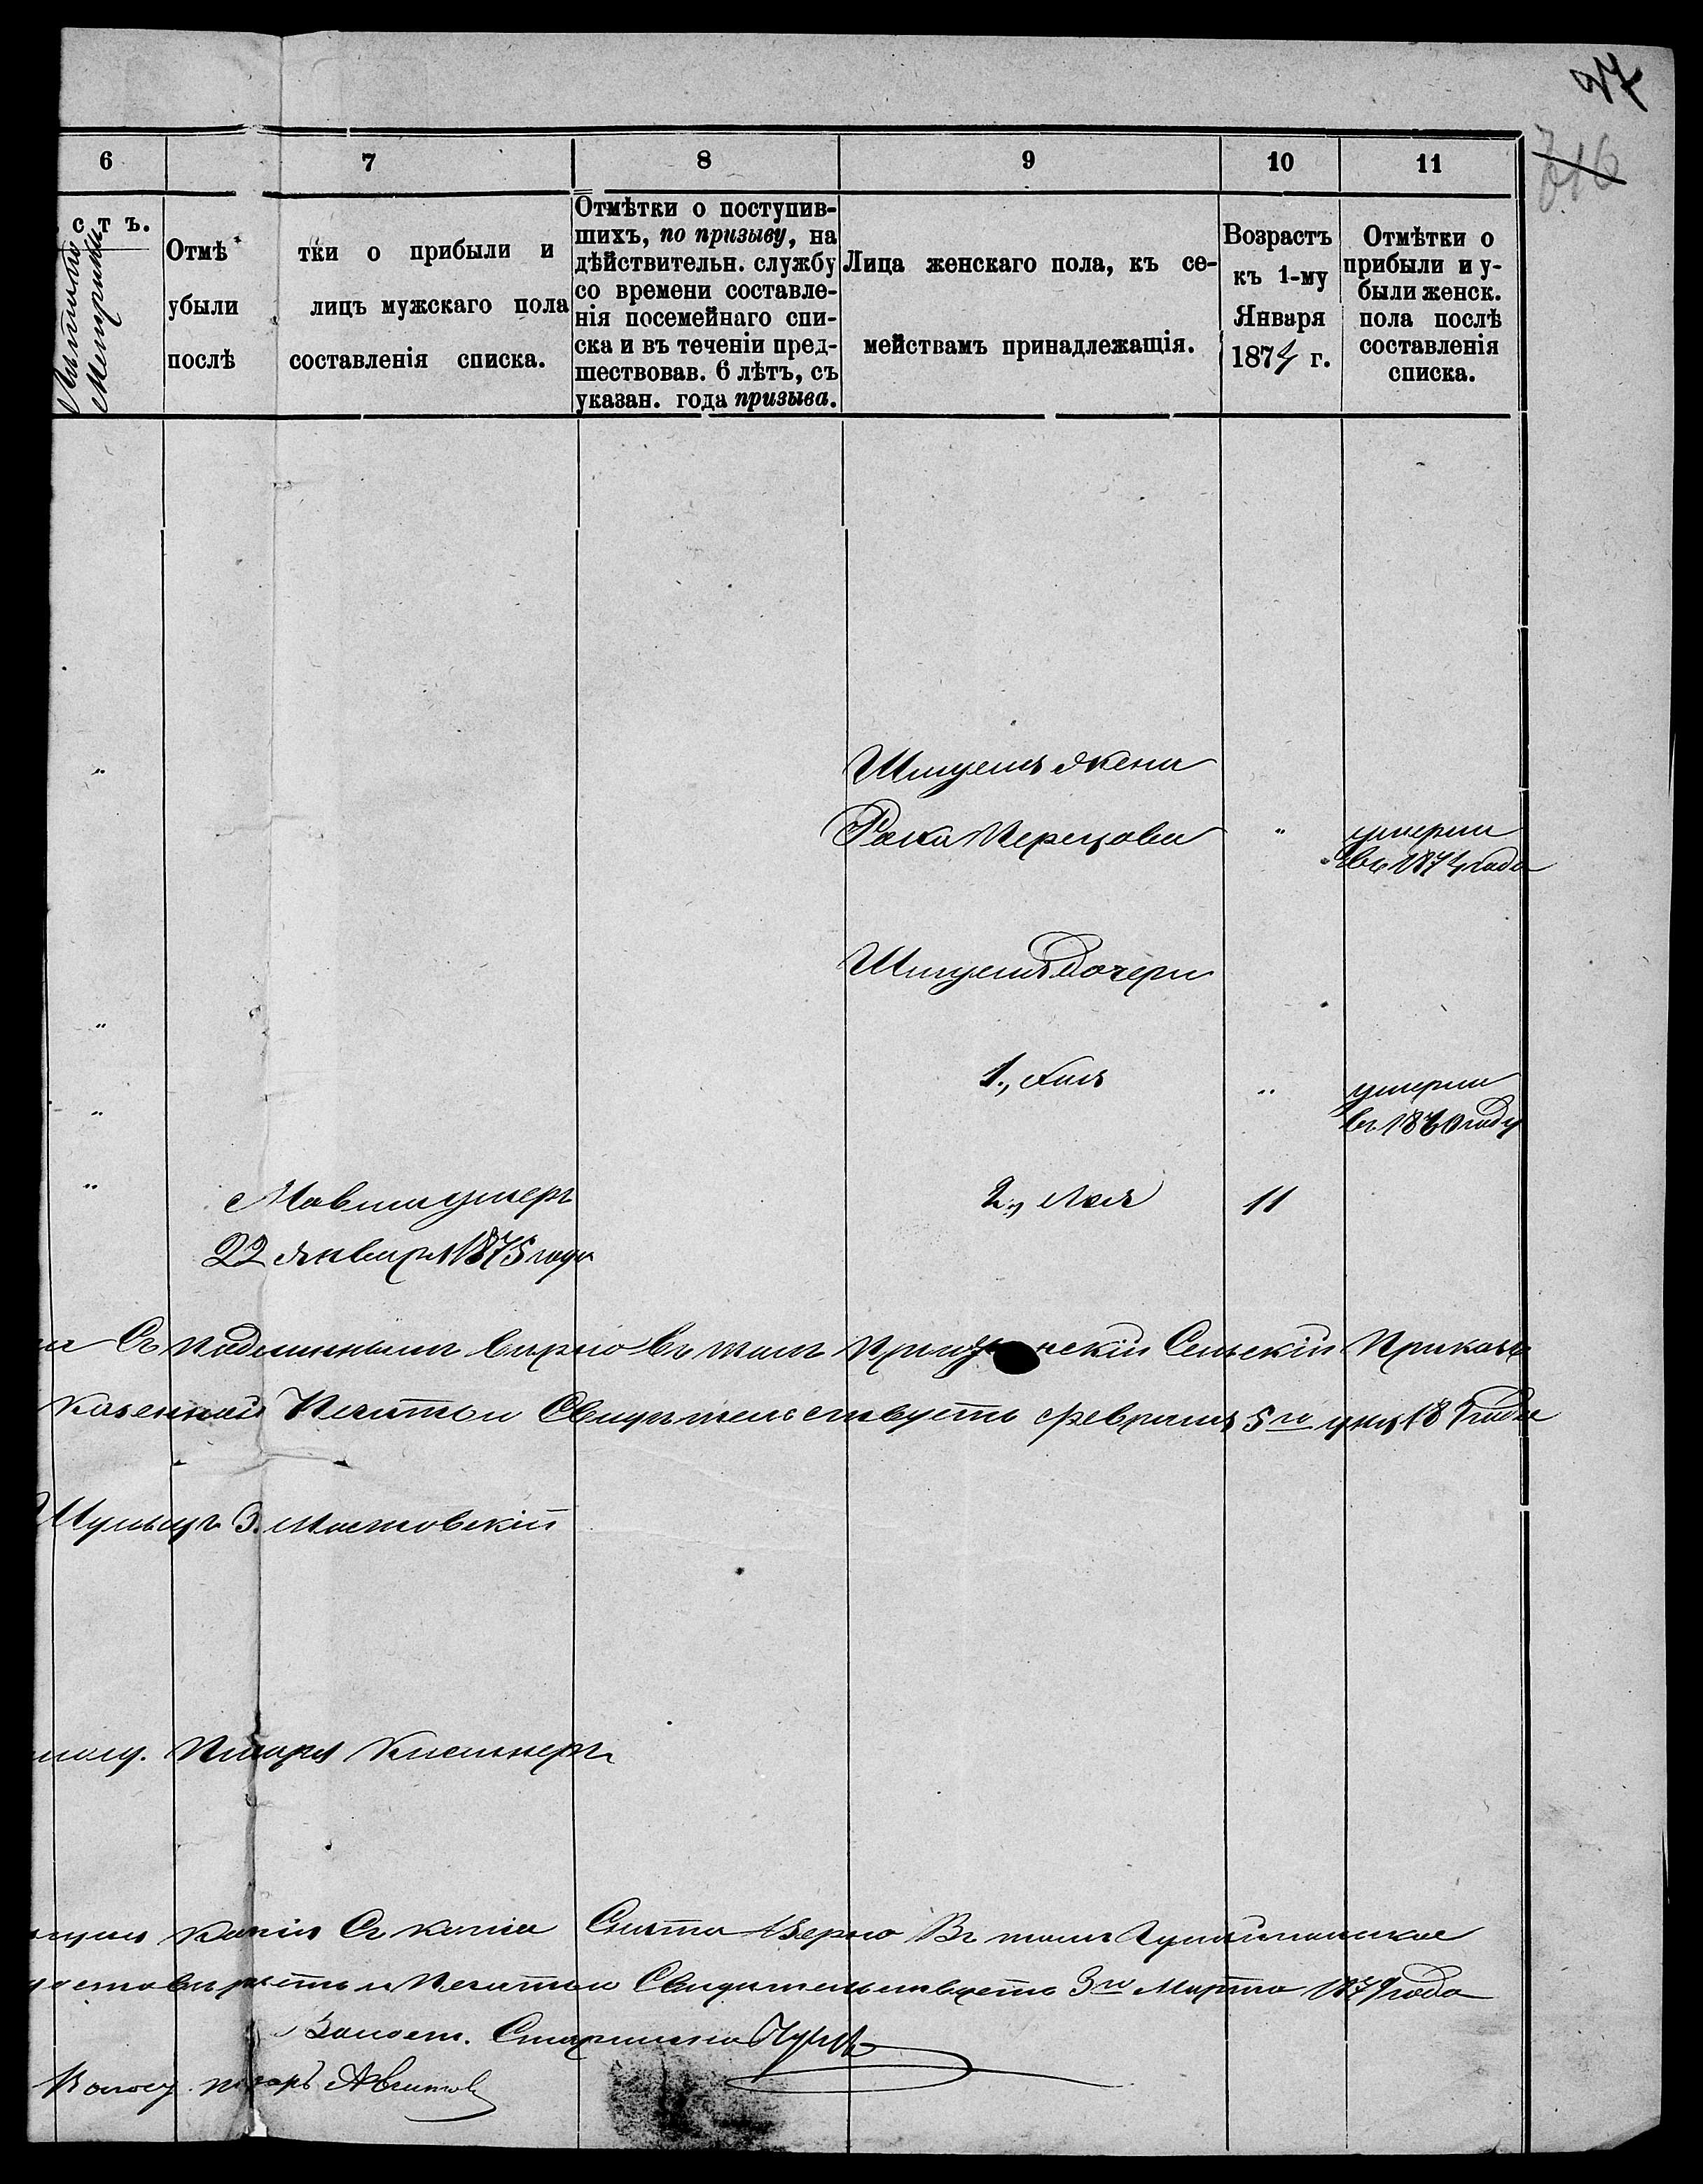 47
716
6 7 8 9 10 11
с т ъ.
Метрики
Отмѣтки о прибыли и
убыли лицъ мужскаго пола
послѣ составленія списка.
Отмѣтки о поступив-
шихъ, по призыву, на
дѣйствительн. службу
со времени составле-
нія посемейнаго спи-
ска и въ теченіи пред-
шествовав. 6 лѣтъ, съ
указан. года призыва.
Лица женскаго пола, къ се-
мействамъ принадлежащія.
Возрастъ
къ 1-му
Января
1874 г.
Отмѣтки о
прибыли и у-
были женск.
пола послѣ
составленія
списка.
Шмуеля жена
Рока Перецова " умерла
въ 1874 года
Шмуеля дочери
1., Хая " умерла
въ 1860 году
Мовша умеръ 2., Лея 11
22 Января 1875 года
Съ подлиннымъ вѣрно въ томъ Сельскій Приказъ
казенной Печатью Свидѣтельствуетъ февраля 5го дня 187 года
Шульцъ З. Мостовскій
Писаря
копія Съ копіи Снята вѣрно Въ томъ
и Печатью Свидѣтельствуетъ 3го Марта 1879 года
Старшина
Волост. писарь